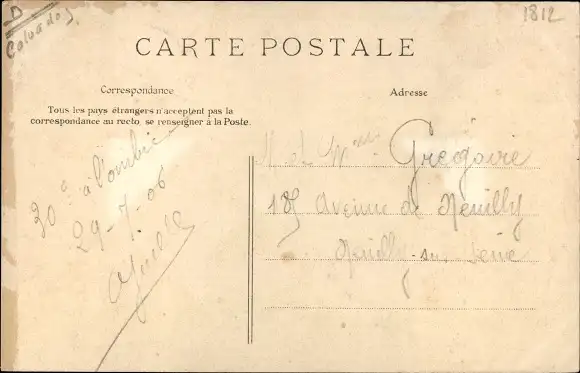 D
Calvados
1812
CARTE POSTALE
Correspondance
Tous les pays étrangers n'acceptent pas la
correspondance au recto, se renseigner à la Poste.
30° à l'ombre
29-7-06
Adresse
M et Mme Grégoire
185 Avenue de Neuilly
Neuilly-sur-Seine